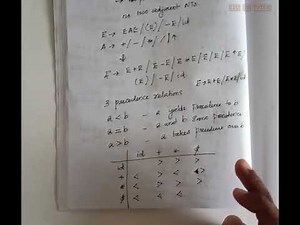 no two adjacent NTs.
E → EAE / (E) / -E / id
A → + / - / * / / / ↑
↓
E → E+E / E-E / E*E / E/E / E↑E /
(E) / -E / id
E→E+E/E*E/id
3 precedence relations
a < b - a yields precedence to b
a = b - a and b same precedence
a > b - a takes precedence over b
id + * $
id > > >
+ < > < >
* < > > >
$ < < <